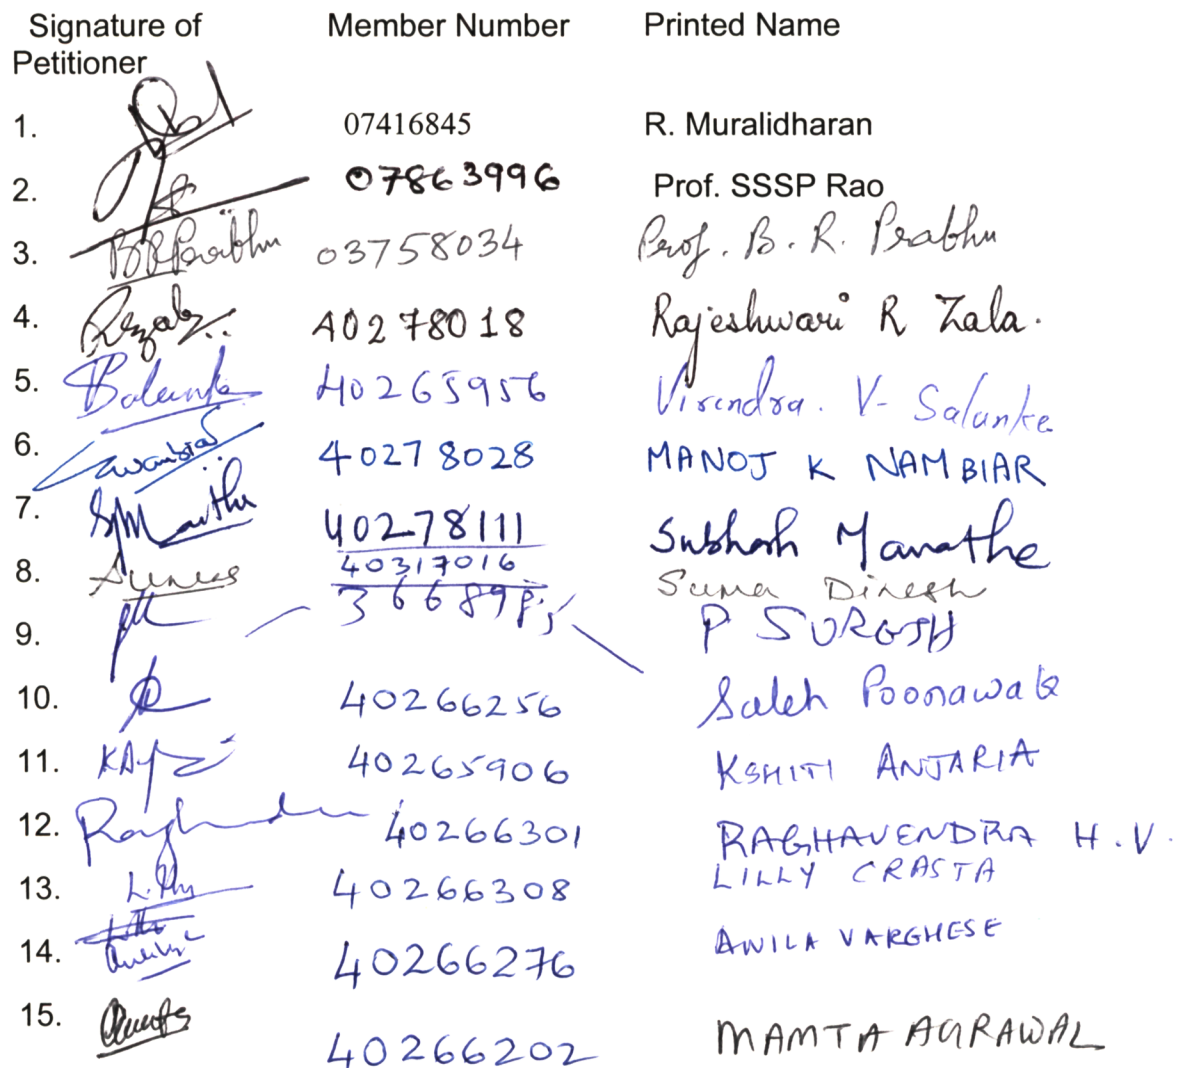 Signature of Petitioner Member Number Printed Name
1. 07416845 R. Muralidharan
2. 07863996 Prof. SSSP Rao
3. BRPrabhu 03758034 Prof. B. R. Prabhu
4. 40278018 Rajeshwari R Zala.
5. 40265956 Virendra. V- Salunke
6. 40278028 MANOJ K NAMBIAR
7. 40278111 Subhash Marathe
8. 40317016 Suma Dinesh
9. P SURESH
10. 40266256 Saleh Poonawala
11. 40265906 KSHITI ANJARIA
12. 40266301 RAGHAVENDRA H.V.
13. 40266308 LILLY CRASTA
14. 40266276 ANILA VARGHESE
15. 40266202 MAMTA AGRAWAL